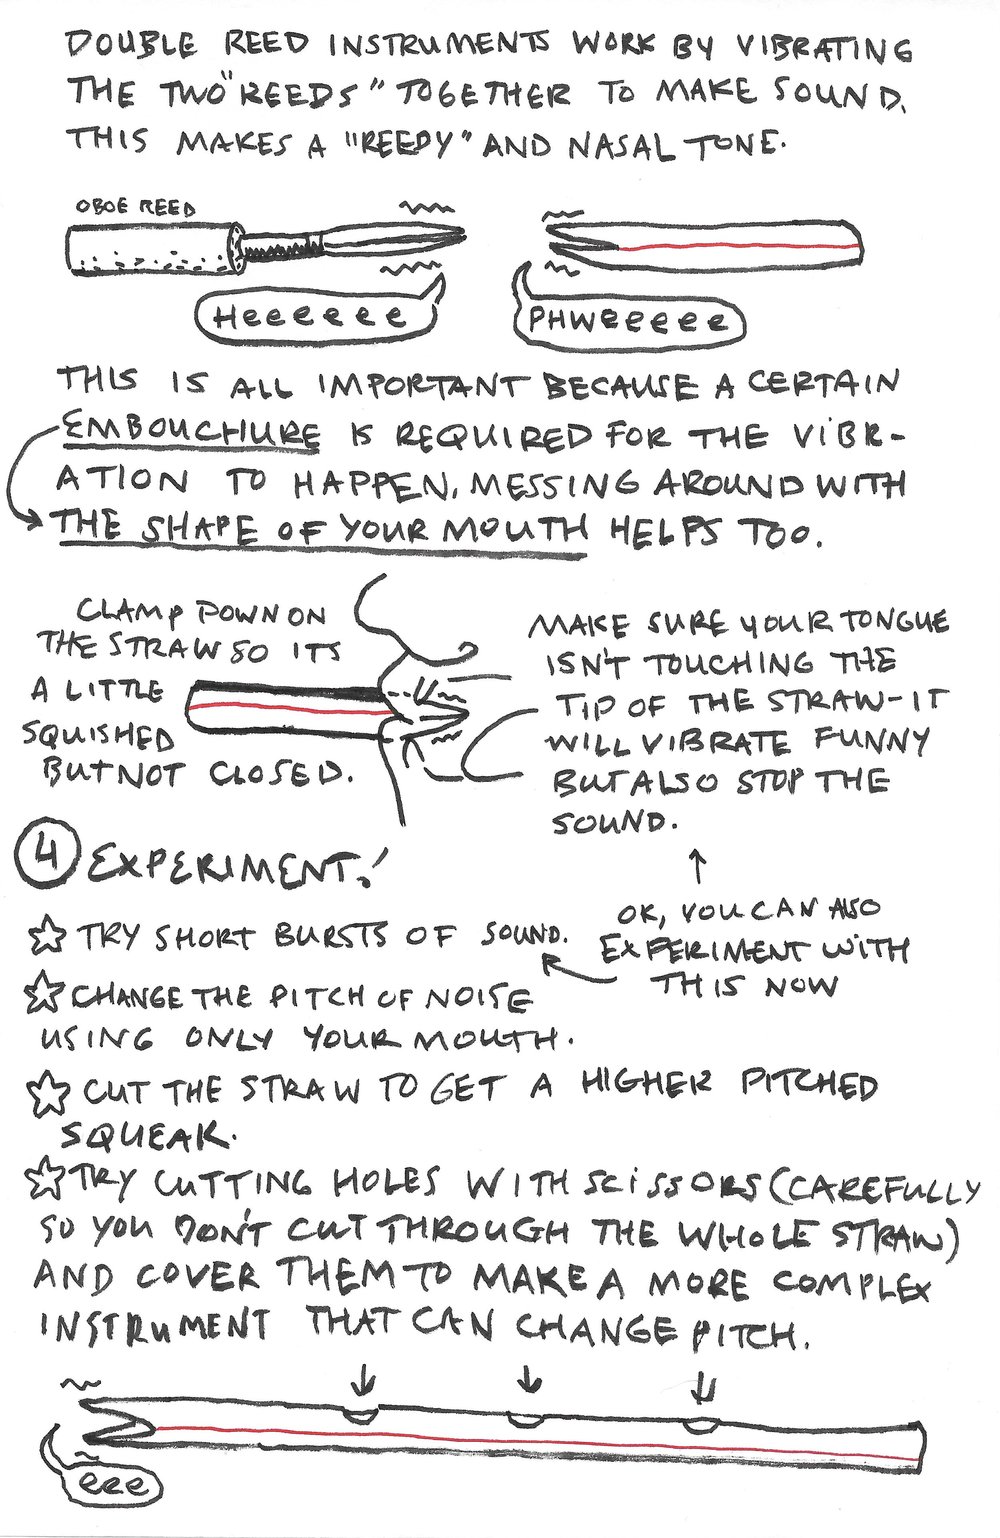 DOUBLE REED INSTRUMENTS WORK BY VIBRATING
THE TWO "REEDS" TOGETHER TO MAKE SOUND.
THIS MAKES A "REEDY" AND NASAL TONE.
OBOE REED
Heeeeee
PHWeeeee
THIS IS ALL IMPORTANT BECAUSE A CERTAIN
EMBOUCHURE IS REQUIRED FOR THE VIBR-
ATION TO HAPPEN. MESSING AROUND WITH
THE SHAPE OF YOUR MOUTH HELPS TOO.
CLAMP DOWN ON
THE STRAW SO ITS
A LITTLE
SQUISHED
BUT NOT CLOSED.
MAKE SURE YOUR TONGUE
ISN'T TOUCHING THE
TIP OF THE STRAW-IT
WILL VIBRATE FUNNY
BUT ALSO STOP THE
SOUND.
4 EXPERIMENT!
TRY SHORT BURSTS OF SOUND.
OK, YOU CAN ALSO
EXPERIMENT WITH
THIS NOW
CHANGE THE PITCH OF NOISE
USING ONLY YOUR MOUTH.
CUT THE STRAW TO GET A HIGHER PITCHED
SQUEAK.
TRY CUTTING HOLES WITH SCISSORS (CAREFULLY
SO YOU DON'T CUT THROUGH THE WHOLE STRAW)
AND COVER THEM TO MAKE A MORE COMPLEX
INSTRUMENT THAT CAN CHANGE PITCH.
eee